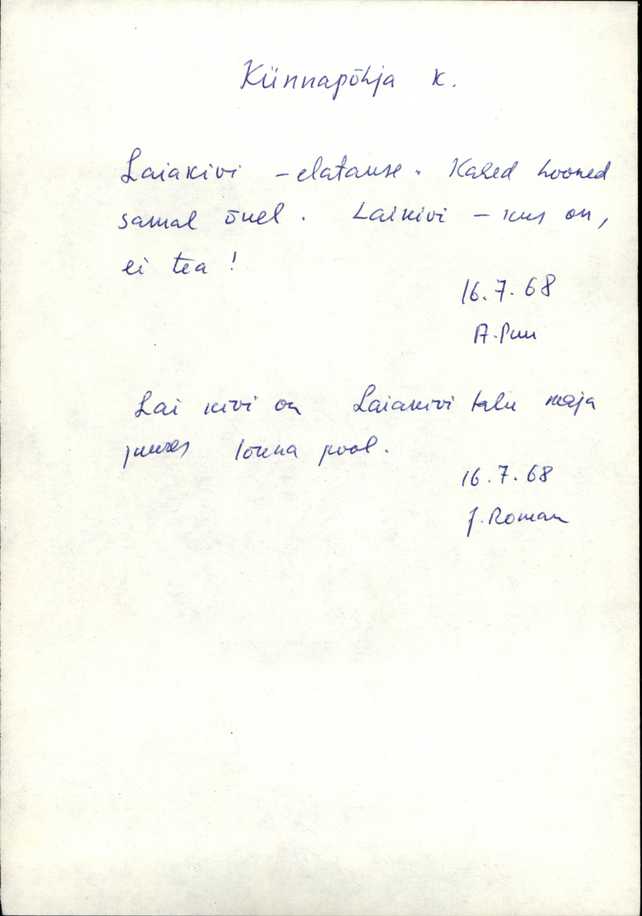 Künnapõhja k.
Laiakivi - elatakse. Kahed hooned
samal õuel. Laikivi - kus on,
ei tea!
16.7.68
A. Puu
Lai kivi on Laiakivi talu maja
juures lõuna pool.
16.7.68
J. Roman